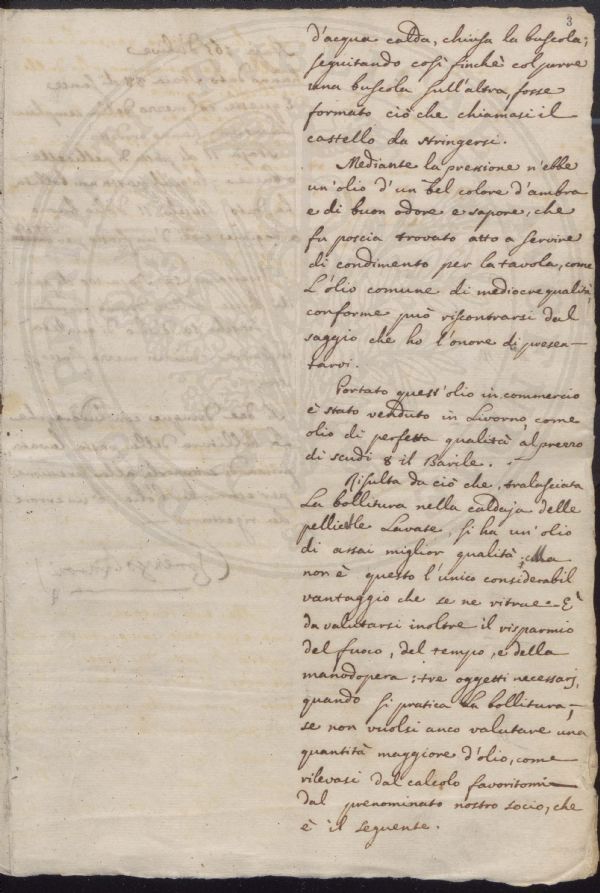 3
d'acqua calda, chiusa la buscola;
seguitando così finchè col porre
una buscola sull'altra, fosse
formato ciò che chiamasi il
castello da stringersi.
Mediante la pressione n'ebbe
un'olio d'un bel colore d'ambra
e di buon odore e sapore, che
fu poscia trovato atto a servire
di condimento per la tavola, come
L'olio comune di mediocre qualità,
conforme può riscontrarsi dal
saggio che ho l'onore di presen-
tarvi.
Portato quest'olio in commercio
è stato venduto in Livorno come
olio di perfetta qualità al prezzo
di scudi 8 il Barile.
Risulta da ciò che, tralasciata
La bollitura nella caldaja delle
pellicelle Lavate, si ha un'olio
di assai miglior qualità; Ma
non è questo l'unico considerabil
vantaggio che se ne ritrae - È
da valutarsi inoltre il risparmio
del fuoco, del tempo, e della
manodopera: tre oggetti necessarj,
quando si pratica La bollitura,
se non vuolsi anco valutare una
quantità maggiore d'olio, come
rilevasi dal calcolo favoritomi
dal prenominato nostro socio, che
è il seguente.